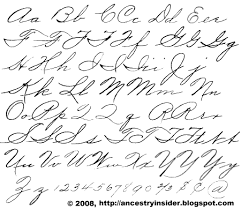 Aa Bb CCc Dd Eee
FfFfFf GgGg
Hh Ii Jj
Kk Ll Mm Nn
Oo Pp 2Qq Rrr
SSs TtTtt
Uu Vv Ww Xx YyYy
Zz 1234567890 & @
© 2008, http://ancestryinsider.blogspot.com